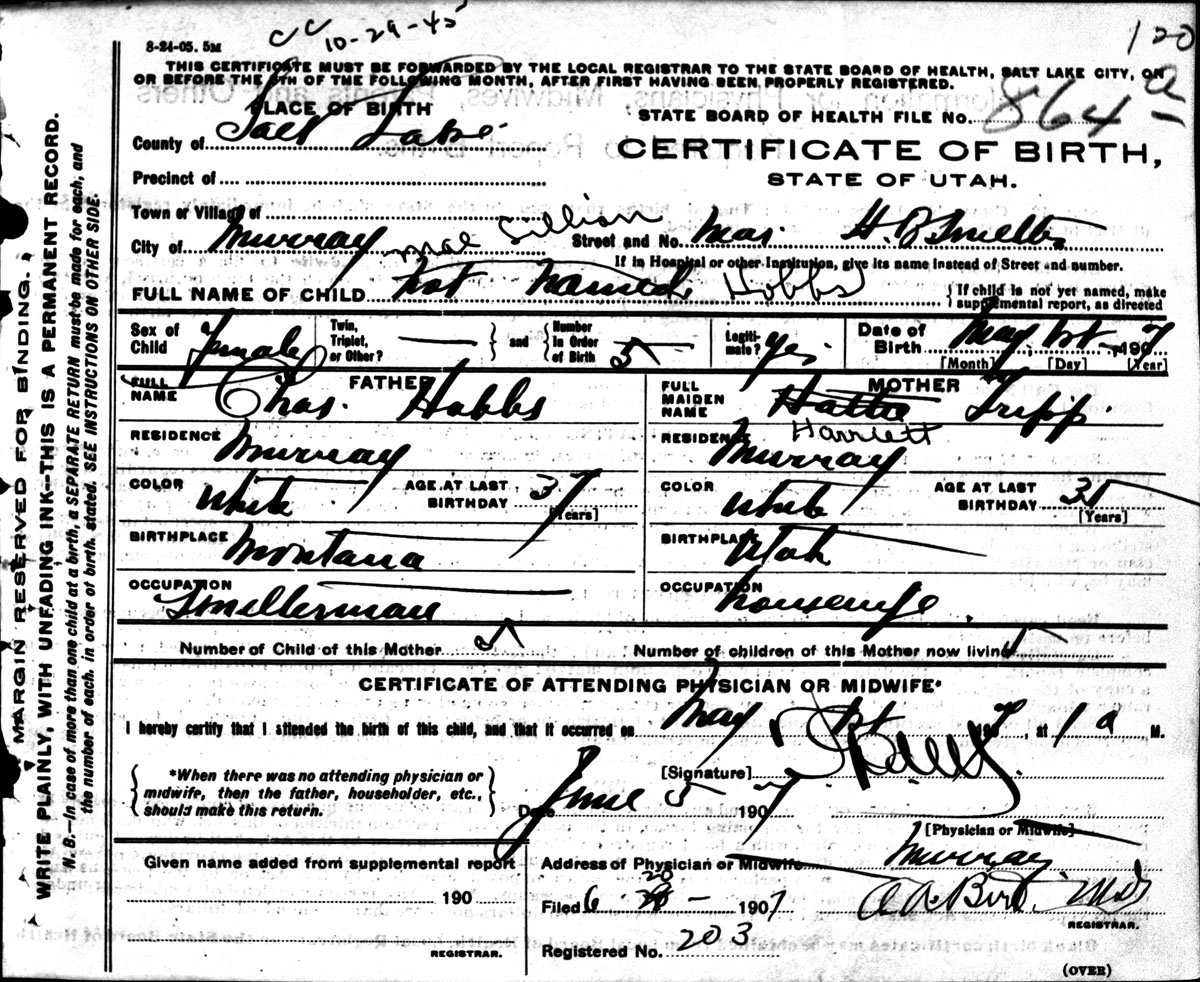 8-24-05. 5M
CC 10-29-45
120
THIS CERTIFICATE MUST BE FORWARDED BY THE LOCAL REGISTRAR TO THE STATE BOARD OF HEALTH, SALT LAKE CITY, ON
OR BEFORE THE 5TH OF THE FOLLOWING MONTH, AFTER FIRST HAVING BEEN PROPERLY REGISTERED.
PLACE OF BIRTH
STATE BOARD OF HEALTH FILE No. 864 a
County of Salt Lake
CERTIFICATE OF BIRTH,
STATE OF UTAH.
Precinct of
Town or Village of
City of Murray Street and No. Near
If in Hospital or other Institution, give its name instead of Street and number.
Mae Lillian
FULL NAME OF CHILD Not Named Hobbs
If child is not yet named, make
supplemental report, as directed
Sex of Child Female Twin, Triplet, or Other? — and Number in Order of Birth 5 Legitimate? Yes Date of Birth May 1st 1907
[Month] [Day] [Year]
FATHER
FULL NAME Chas. Hobbs
RESIDENCE Murray
COLOR White AGE AT LAST BIRTHDAY 37 [Years]
BIRTHPLACE Montana
OCCUPATION Smelterman
MOTHER
FULL MAIDEN NAME Hattie Tripp
Harriett
RESIDENCE Murray
COLOR White AGE AT LAST BIRTHDAY 35 [Years]
BIRTHPLACE Utah
OCCUPATION housewife
Number of Child of this Mother 5 Number of children of this Mother now living 5
CERTIFICATE OF ATTENDING PHYSICIAN OR MIDWIFE*
I hereby certify that I attended the birth of this child, and that it occurred on May 1st 1907, at 1 a M.
*When there was no attending physician or
midwife, then the father, householder, etc.,
should make this return.
[Signature]
Date June 5 1907
[Physician or Midwife]
Given name added from supplemental report
190
REGISTRAR.
Address of Physician or Midwife Murray
Filed 6 20 - 1907
REGISTRAR.
Registered No. 203
(OVER)
MARGIN RESERVED FOR BINDING.
WRITE PLAINLY, WITH UNFADING INK—THIS IS A PERMANENT RECORD.
N. B.—In case of more than one child at a birth, a SEPARATE RETURN must be made for each, and
the number of each, in order of birth, stated. SEE INSTRUCTIONS ON OTHER SIDE.